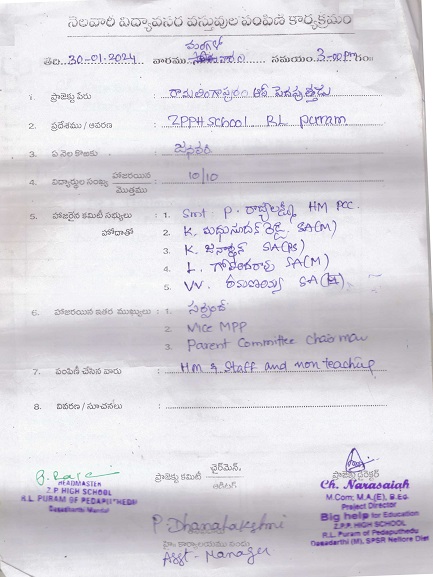 నెలవారీ విద్యావసర వస్తువుల పంపిణీ కార్యక్రమం
తేది. 30-01-2024 వారము. మంగళ సమయం. 3-00 pm గం॥
1. ప్రాజెక్టు పేరు : రామలింగాపురం ఆఫ్ పెదపుత్తేడు
2. ప్రదేశము / ఆవరణ : ZPPH SCHOOL R.L Puram.
3. ఏ నెల కొఱకు : జనవరి
4. విద్యార్థుల సంఖ్య హాజరయిన / మొత్తము : 10/10
5. హాజరైన కమిటీ సభ్యులు : 1. Smt. P. రాజ్యలక్ష్మి HM PCC.
హోదాతో : 2. K. మధుసుదన్ రెడ్డి. SA(M)
3. K. జనార్ధన్ SA(PS)
4. L. గోవిందరావు SA(M)
5. VV. రమణయ్య SA
6. హాజరయిన ఇతర ముఖ్యులు : 1. సర్పంచ్
2. Vice MPP
3. Parent Committee Chairman
7. పంపిణీ చేసిన వారు : HM & Staff and non teaching
8. వివరణ / సూచనలు :
HEADMASTER
Z.P HIGH SCHOOL
R.L PURAM OF PEDAPUTHEDU
Dagadarthi Mandal
ప్రాజెక్టు కమిటీ ఛైర్‌మెన్,
ఆడిటర్
P. Dhanalakshmi
Asst- Manager
ప్రాజెక్టు డైరెక్టర్
Ch. Narasaiah
M.Com; M.A,(E), B.Ed.
Project Director
Big help for Education
Z.P.P. HIGH SCHOOL
R.L. Puram of Pedaputhedu
Dagadarthi (M), SPSR Nellore Dist